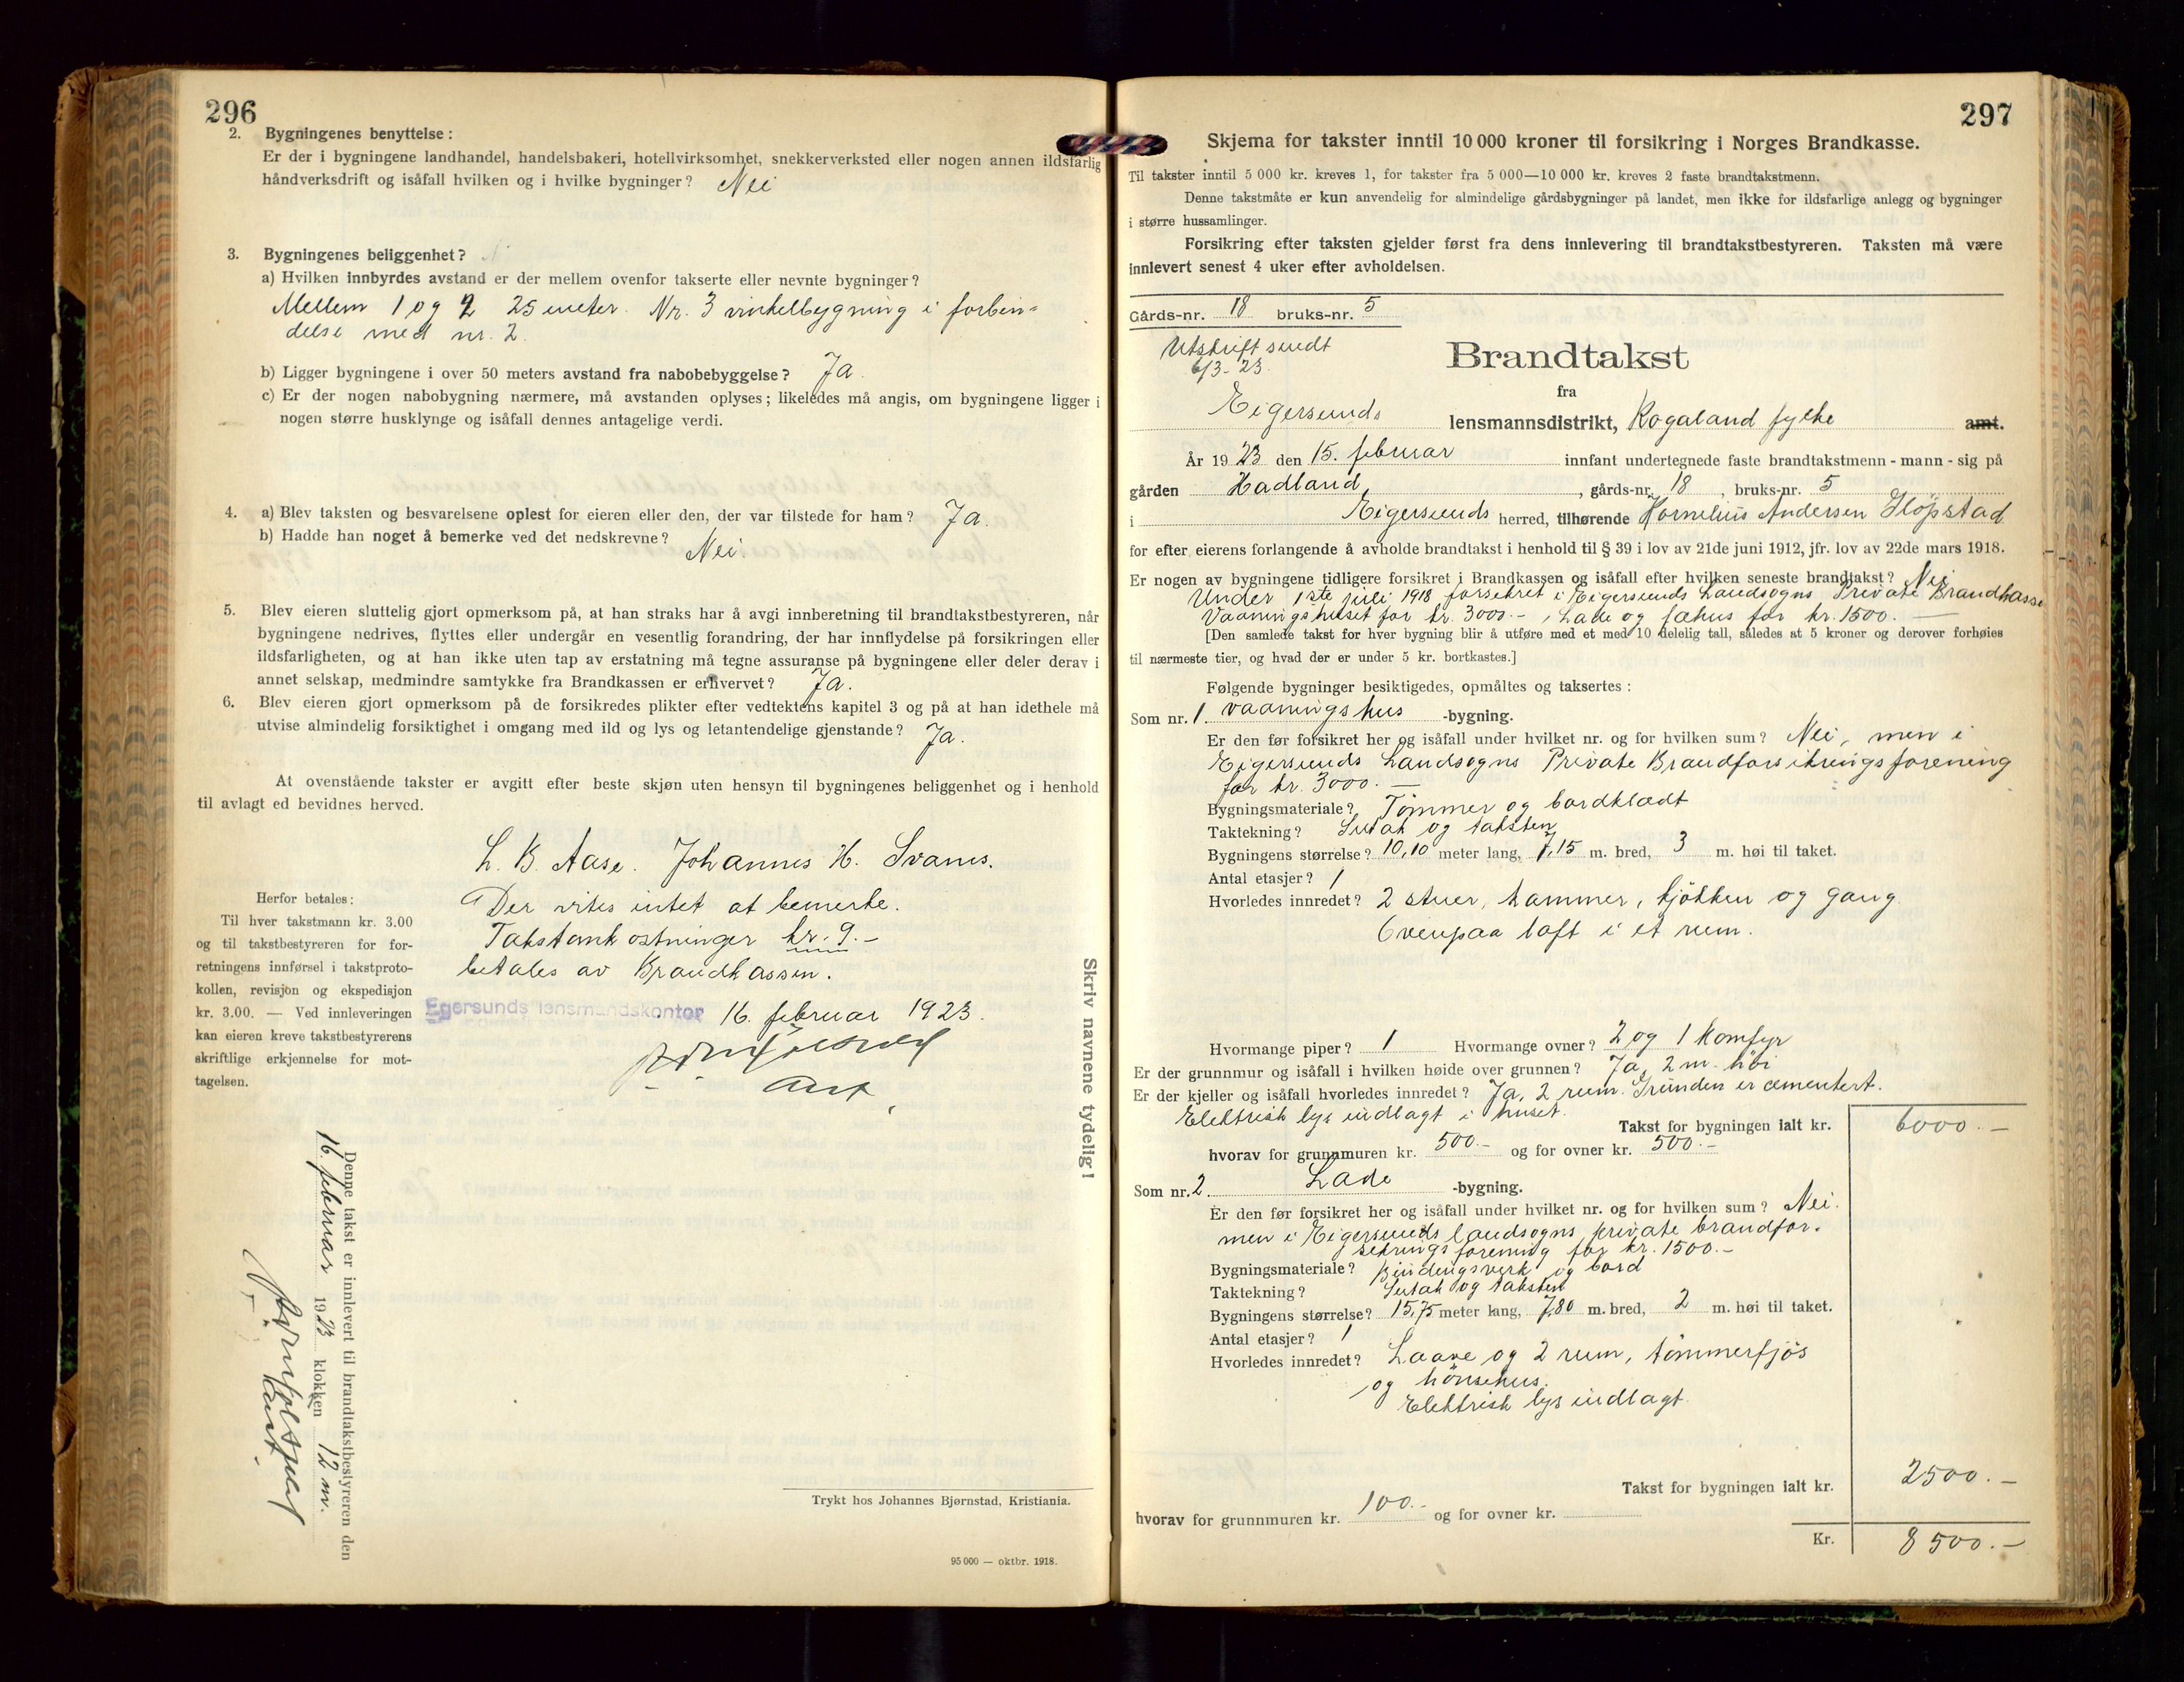 296
2. Bygningenes benyttelse:
Er der i bygningene landhandel, handelsbakeri, hotellvirksomhet, snekkerverksted eller nogen annen ildsfarlig
håndverksdrift og isåfall hvilken og i hvilke bygninger? Nei
3. Bygningenes beliggenhet?
a) Hvilken innbyrdes avstand er der mellem ovenfor takserte eller nevnte bygninger?
Mellem 1 og 2 25 meter. Nr. 3 vinkelbygning i forbin-
delse med nr. 2.
b) Ligger bygningene i over 50 meters avstand fra nabobebyggelse? Ja.
c) Er der nogen nabobygning nærmere, må avstanden oplyses; likeledes må angis, om bygningene ligger i
nogen større husklynge og isåfall dennes antagelige verdi.
4. a) Blev taksten og besvarelsene oplest for eieren eller den, der var tilstede for ham? Ja.
b) Hadde han noget å bemerke ved det nedskrevne? Nei.
5. Blev eieren sluttelig gjort opmerksom på, at han straks har å avgi innberetning til brandtakstbestyreren, når
bygningene nedrives, flyttes eller undergår en vesentlig forandring, der har innflydelse på forsikringen eller
ildsfarligheten, og at han ikke uten tap av erstatning må tegne assuranse på bygningene eller deler derav i
annet selskap, medmindre samtykke fra Brandkassen er erhvervet? Ja.
6. Blev eieren gjort opmerksom på de forsikredes plikter efter vedtektens kapitel 3 og på at han idethele må
utvise almindelig forsiktighet i omgang med ild og lys og letantendelige gjenstande? Ja.
At ovenstående takster er avgitt efter beste skjøn uten hensyn til bygningenes beliggenhet og i henhold
til avlagt ed bevidnes herved.
L. B. Aase. Johannes H. Svanes.
Der vites intet at bemerke.
Takstomkostninger kr. 9.-
betales av Brandkassen.
Egersunds lensmandskontor 16. februar 1923.
Herfor betales:
Til hver takstmann kr. 3.00
og til takstbestyreren for for-
retningens innførsel i takstproto-
kollen, revisjon og ekspedisjon
kr. 3.00. — Ved innleveringen
kan eieren kreve takstbestyrerens
skriftlige erkjennelse for mot-
tagelsen.
Skriv navnene tydelig!
Denne takst er innlevert til brandtakstbestyreren den
16. februar 1923 klokken 12 m.
Trykt hos Johannes Bjørnstad, Kristiania.
95 000 — oktbr. 1918.
297
Skjema for takster inntil 10 000 kroner til forsikring i Norges Brandkasse.
Til takster inntil 5 000 kr. kreves 1, for takster fra 5 000—10 000 kr. kreves 2 faste brandtakstmenn.
Denne takstmåte er kun anvendelig for almindelige gårdsbygninger på landet, men ikke for ildsfarlige anlegg og bygninger
i større hussamlinger.
Forsikring efter taksten gjelder først fra dens innlevering til brandtakstbestyreren. Taksten må være
innlevert senest 4 uker efter avholdelsen.
Gårds-nr. 18 bruks-nr. 5
Utskrift sendt
6/3-23.
Brandtakst
fra
Eigersunds lensmannsdistrikt, Rogaland fylke amt.
År 1923 den 15. februar innfant undertegnede faste brandtakstmenn - mann - sig på
gården Hadland, gårds-nr. 18, bruks-nr. 5
i Eigersunds herred, tilhørende Kornelius Andersen Sløpstad
for efter eierens forlangende å avholde brandtakst i henhold til § 39 i lov av 21de juni 1912, jfr. lov av 22de mars 1918.
Er nogen av bygningene tidligere forsikret i Brandkassen og isåfall efter hvilken seneste brandtakst? Nei
Under 1ste juli 1918 forsekret i Eigersunds Landsogns Private Brandkasse
Vaaningshuset for kr. 3000.-, Lade og fæhus for kr. 1500.—
[Den samlede takst for hver bygning blir å utføre med et med 10 delelig tall, således at 5 kroner og derover forhøies
til nærmeste tier, og hvad der er under 5 kr. bortkastes.]
Følgende bygninger besiktigedes, opmåltes og taksertes:
Som nr. 1. vaaningshus -bygning.
Er den før forsikret her og isåfall under hvilket nr. og for hvilken sum? Nei, men i
Eigersunds Landsogns Private Brandforsikringsforening
for kr. 3000.—
Bygningsmateriale? Tømmer og bordklædt
Taktekning? Sutak og taksten
Bygningens størrelse? 10,10 meter lang, 7,15 m. bred, 3 m. høi til taket.
Antal etasjer? 1
Hvorledes innredet? 2 stuer, kammer, kjøkken og gang
Ovenpaa loft i et rum.
Hvormange piper? 1 Hvormange ovner? 2 og 1 komfyr
Er der grunnmur og isåfall i hvilken høide over grunnen? Ja, 2 m. høi
Er der kjeller og isåfall hvorledes innredet? Ja, 2 rum. Grunden er cementert.
Elektrisk lys indlagt i huset.
Takst for bygningen ialt kr. 6000.—
hvorav for grunnmuren kr. 500.- og for ovner kr. 500.-
Som nr. 2. Lade -bygning.
Er den før forsikret her og isåfall under hvilket nr. og for hvilken sum? Nei.
men i Eigersunds landsogns private brandfor-
sekringsforening for kr. 1500.-
Bygningsmateriale? Bindingsverk og bord
Taktekning? Sutak og taksten
Bygningens størrelse? 15,75 meter lang, 7,80 m. bred, 2 m. høi til taket.
Antal etasjer? 1
Hvorledes innredet? Laave og 2 rum, tømmerfjøs
og hønsehus.
Elektrisk lys indlagt.
Takst for bygningen ialt kr. 2500.—
hvorav for grunnmuren kr. 100.- og for ovner kr.
Kr. 8500.—